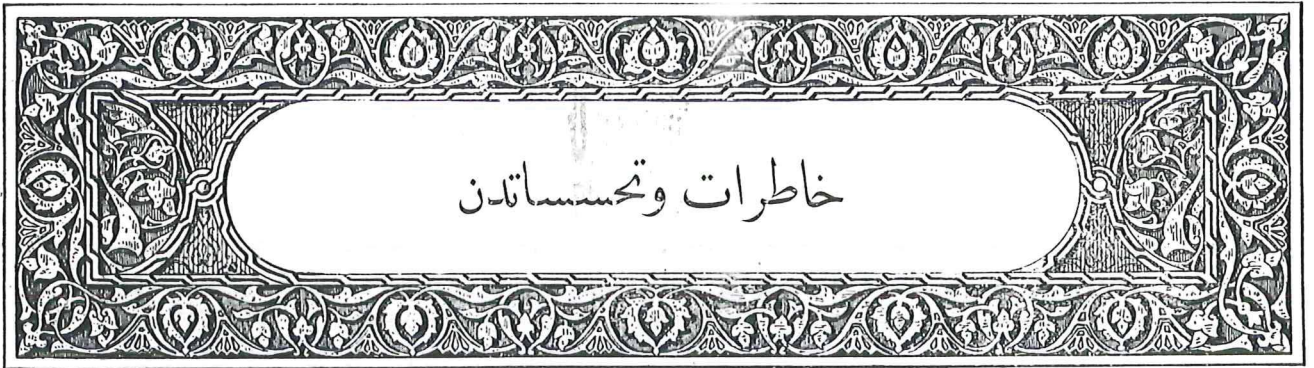 خاطرات وتحسساتدن